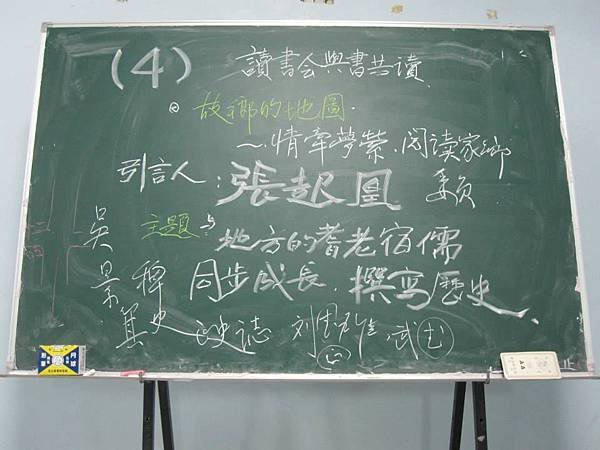 (4) 讀書会與書共读
故鄉的地圖.
~情牽夢縈、閱读家鄉
引言人:張起凰 委员
主題:与地方的耆老宿儒
同步成長、撰寫歷史、
吳景箕 稗史 史誌 武